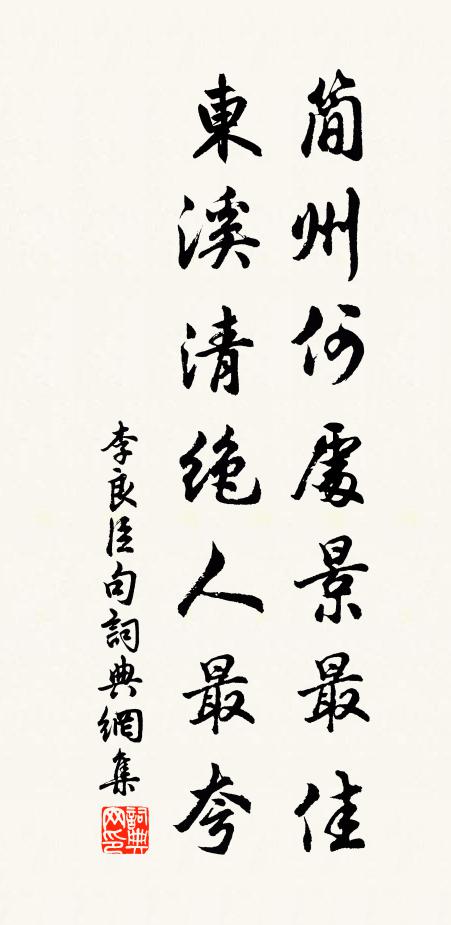 簡州何處景最佳
東溪清絶人最夸
李良臣句詞典網集
詞典
网印